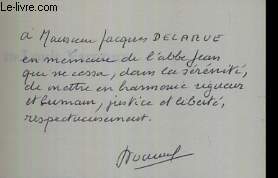 Le-livre.com
à Monsieur Jacques DELARUE
en mémoire de l'abbé Jean
qui ne cessa, dans la sérénité,
de mettre en harmonie rigueur
et humain, justice et liberté,
respectueusement.